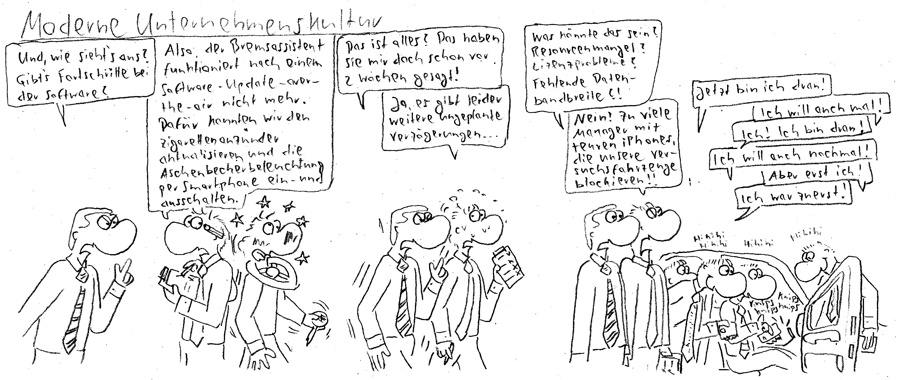 Moderne Unternehmenskultur
Und, wie sieht's aus?
Gibt's Fortschritte bei
der Software?
Also, der Bremsassistent
funktioniert nach einem
Software-Update-over-
the-air nicht mehr.
Dafür konnten wir den
Zigarettenanzünder
aktualisieren und die
Aschenbecherbeleuchtung
per Smartphone ein- und
ausschalten.
Das ist alles? Das haben
Sie mir doch schon vor
2 Wochen gesagt!
Ja, es gibt leider
weitere ungeplante
Verzögerungen...
Was könnte das sein?
Resourcenmangel?
Lizenzprobleme?
Fehlende Daten-
bandbreite?!
Nein! Zu viele
Manager mit
teuren iPhones,
die unsere Ver-
suchsfahrzeuge
blockieren!!
Jetzt bin ich dran!
Ich will auch mal!
Ich! Ich bin dran!
Ich will auch nochmal!
Aber erst ich!
Ich war zuerst!
Hihihi
Hihihi
Hihihi
Hihihi
Knips
Knips
Knips
Knips